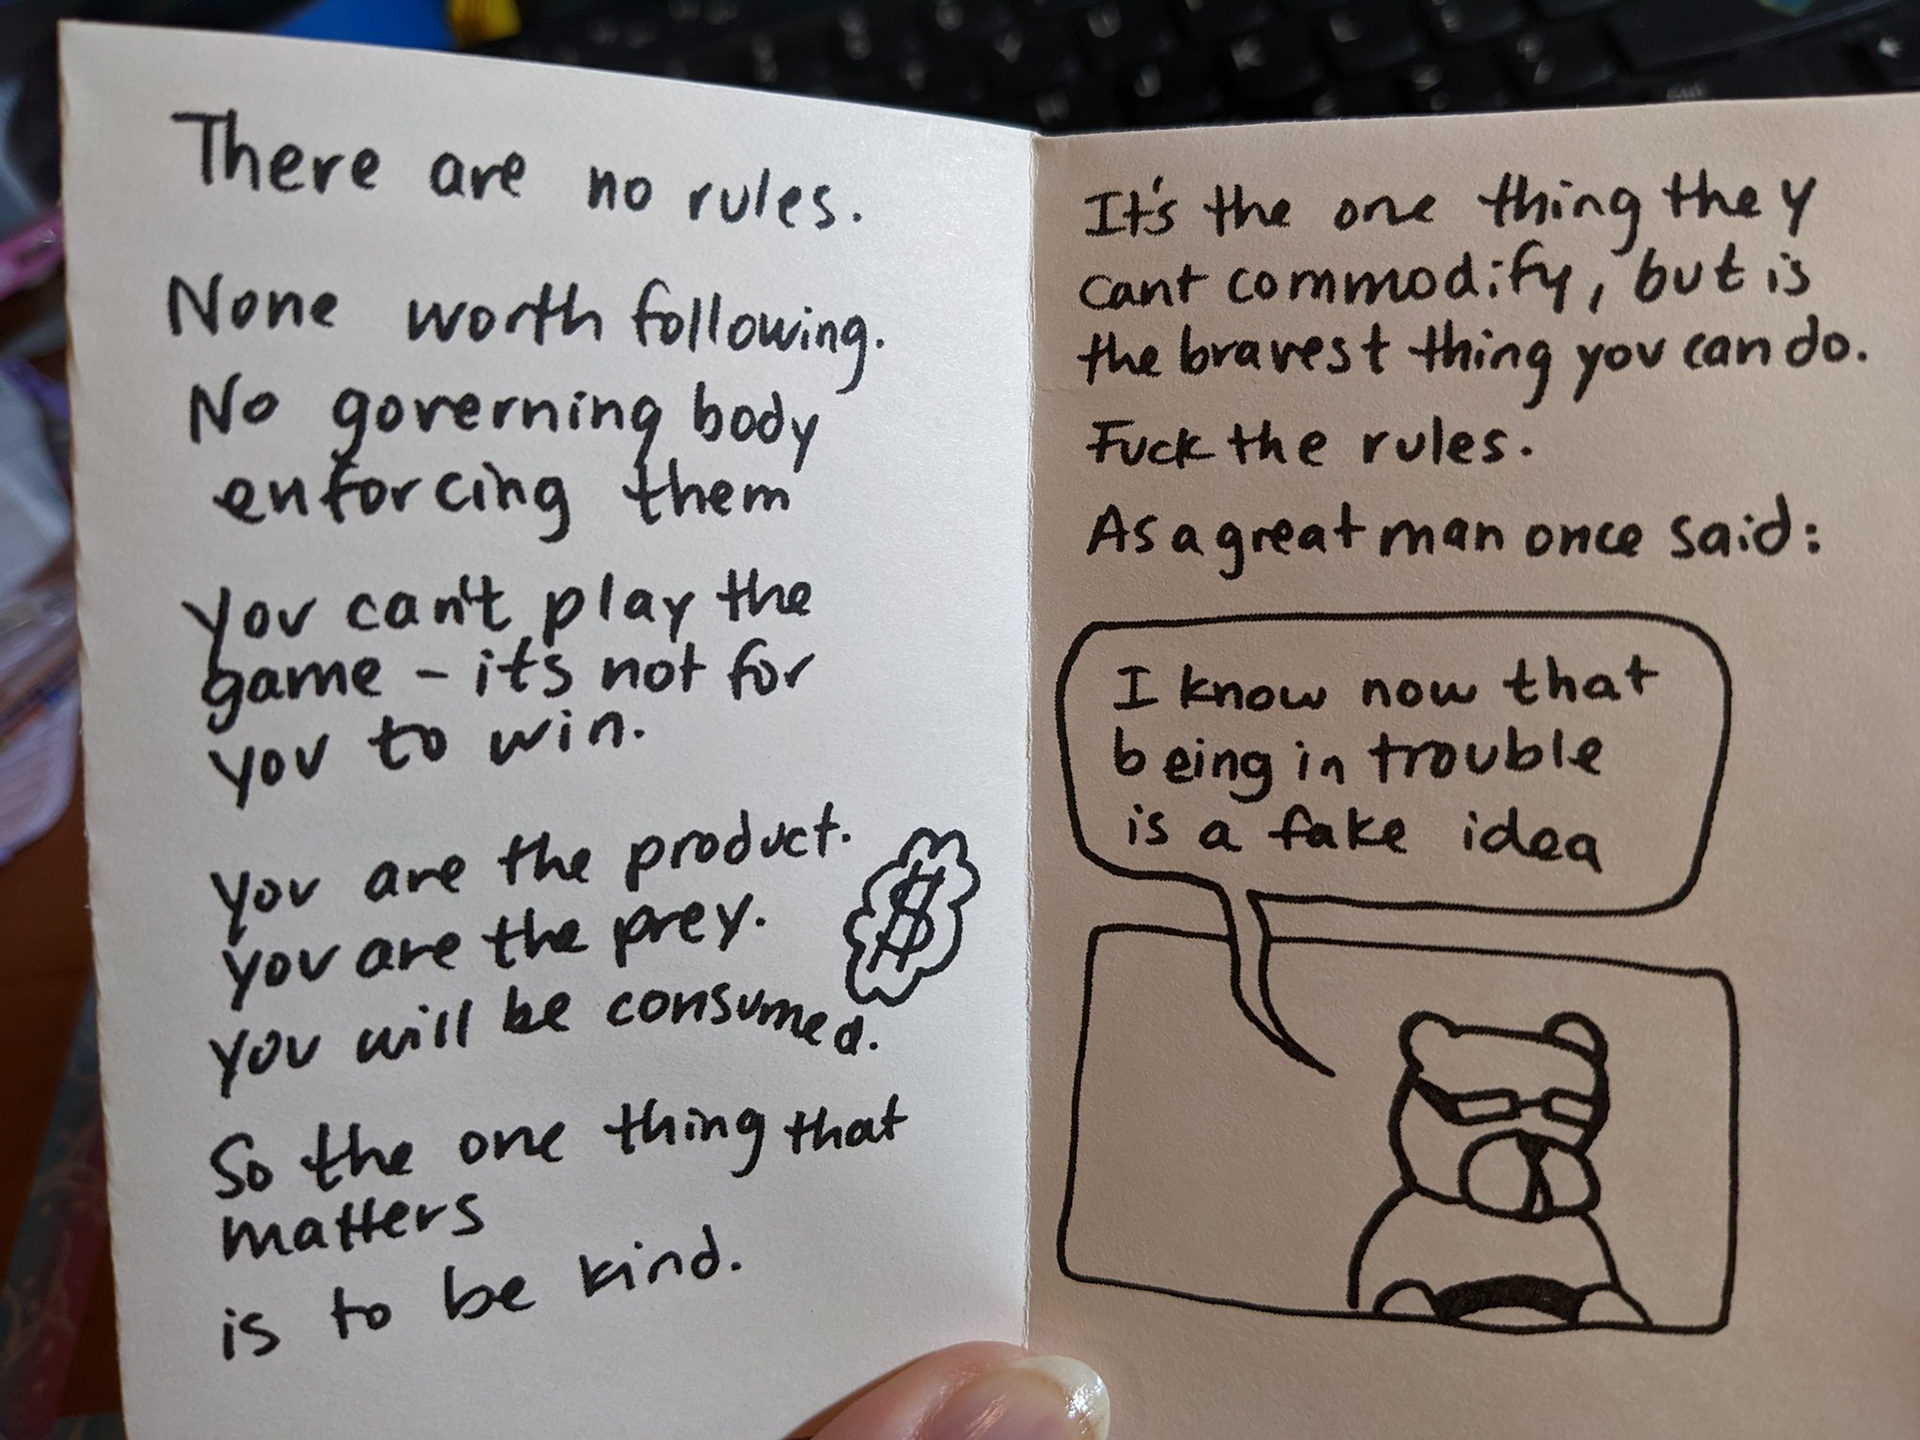 There are no rules.
None worth following.
No governing body
enforcing them
You can't play the
game - it's not for
you to win.
You are the product.
you are the prey.
you will be consumed.
$
So the one thing that
matters
is to be kind.
It's the one thing they
cant commodify, but is
the bravest thing you can do.
Fuck the rules.
As a great man once said:
I know now that
being in trouble
is a fake idea